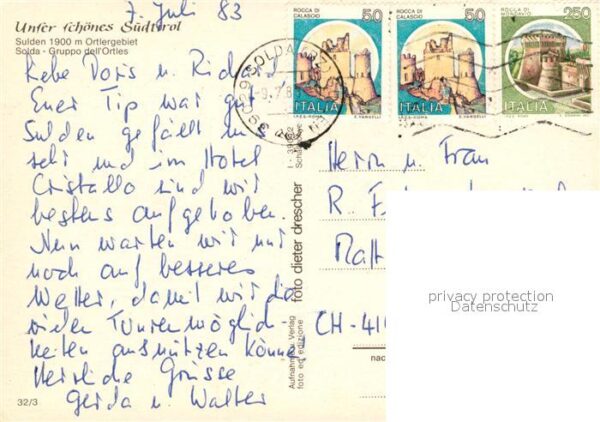 7. Juli 83
Unser schönes Südtirol
Sulden 1900 m Ortlergebiet
Solda - Gruppo dell'Ortles
Liebe Doris u. Richard
Euer Tip war gut
Sulden gefällt uns
sehr und im Hotel
Cristallo sind wir
bestens aufgehoben.
Nun warten wir nur
noch auf besseres
Wetter, damit wir die
vielen Tourenmöglich-
keiten ausnützen können
Herzliche Grüsse
Gerda u. Walter
32/3
Aufnahme u. Verlag
foto ed edizione
foto dieter drescher
ROCCA DI
CALASCIO
50
ITALIA
I.P.Z.S.-ROMA E. VANGELLI
ROCCA DI
CALASCIO
50
ITALIA
I.P.Z.S.-ROMA E. VANGELLI
ROCCA DI
250
ITALIA
SOLDA
Herrn u. Frau
R.
Matt
CH-41
nac
privacy protection
Datenschutz